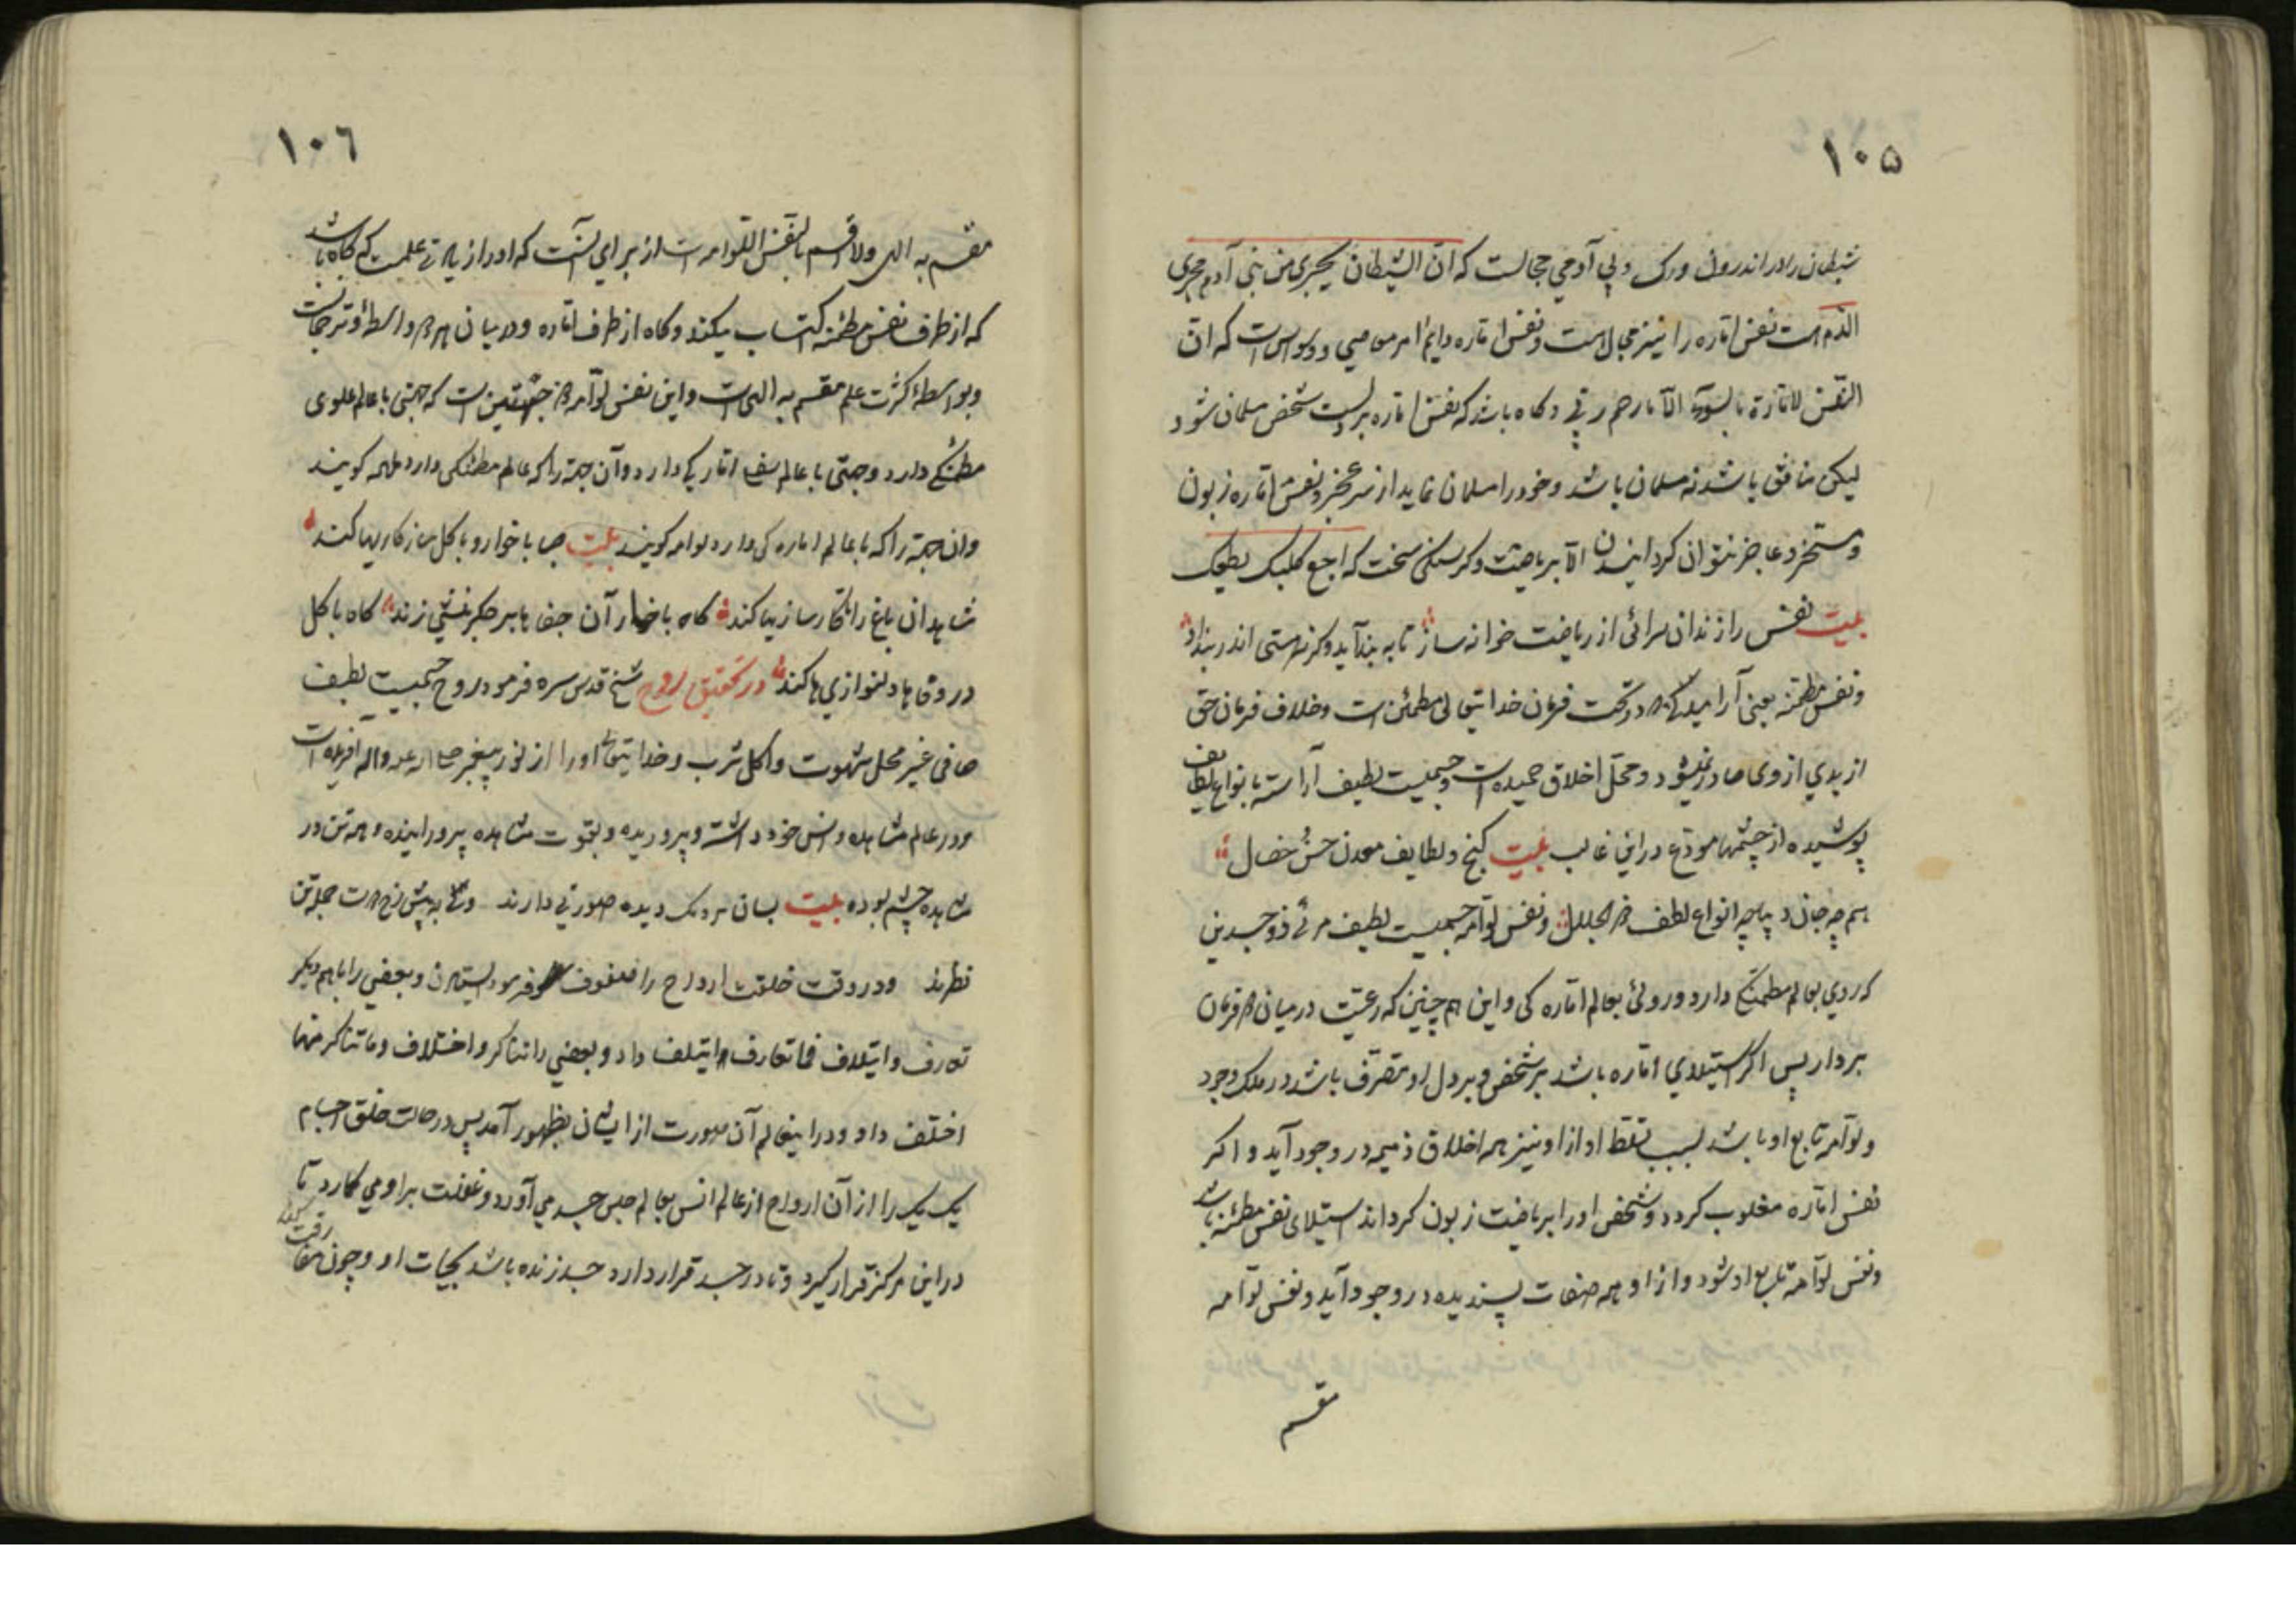 ۱۰۵
شیطان را در اندرون و رک و پی آدمی مجالست که انّ الشیطان یجری من بنی آدم مجری
الدّم است نفس امّاره را نیز مجالست و نفس امّاره دایم امر معاصی و وسواس است که انّ
النّفس لامّارة بالسّوء الّا ما رحم ربّی و کاه باشد که نفس امّاره بر دست شخص مسلمان شود
لیکن منافق باشد نه مسلمان باشد و خود را مسلمان نماید از سر عجز و نفس امّاره زبون
و مسخر و عاجز نتوان کردانیدن الّا بریاضت و کرسنکی سخت که اجع کلبک یطیعک
بیت نفس را زندان سرائی از ریاضت خوانه ساز تا به بند آید و کرنه هستی اندر بند او
و نفس مطمئنه یعنی آرامیده که در تحت فرمان خدایتعالی مطمئن است و خلاف فرمان حق
از بدی از وی صادر نمیشود و محلّ اخلاق حمیده است و جسمیست لطیف آراسته بانواع لطایف
پوشیده از چشمها مودّع در این غالب بیت کنج و لطایف معدن حسن خصال
همچه جان دیباچه انواع لطف ذو الجلال و نفس لوّامه جسمیست لطیف مرئی ذو جسدین
که روی بعالم مطمئنکی دارد و روئی بعالم امّاره کی و این همچنین که رعیّت در میان دو فرمان
بردار پس اکر استیلای امّاره باشد بر شخص و بر دل او متصرّف باشد در ملک وجود
و لوّامه تابع او باشد بسبب تسلّط او از او نیز همه اخلاق ذمیمه در وجود آید و اکر
نفس امّاره مغلوب کردد و شخص او را بریاضت زبون کرداند استیلای نفس مطمئنه باشد
و نفس لوّامه تابع او شود و از او همه صفات پسندیده در وجود آید و نفس لوّامه
مقسم
۱۰۶
مقسم به الهی ولا اقسم بالنّفس اللّوامه است از برای آنست که او را زیادتی علمست که کاه باشد
که از طرف نفس مطمئنه اکتساب میکند و کاه از طرف امّاره و در میان هر دو واسطهٔ و ترجمانست
و بواسطهٔ کثرت علم مقسم به الهی است و این نفس لوّامه ذو جهتین است که جهتی با عالم علوی
مطمئنکی دارد و جهتی با عالم سفلی امّارکی دارد و آن جهة را که عالم مطمئنکی دارد ملهمه کویند
و ان جهة را که با عالم اماره کی دارد لوامه کویند بیت صبا با خوار و با کل سازکاریها کند
شاهدان باغ را نکارسازیها کند کاه با خار آن جفاها بر جکر نیش زند کاه با کل
در وفاها دلنوازی ها کند در تحقیق روح شیخ قدس سره فرمود روح جسمیست لطیف
صافی غیر محل شهوت و اکل شرب و خدایتعالی او را از نور پیغمبر صلی الله علیه و اله آفریده است
و در عالم مشاهده و انس خود داشته و پروریده و بقوت مشاهده پرورانیده و همه تن در
مشاهده چشم بوده بیت بسان مردمک دیده صورتی دارند ولی به پیش رخ دوست جمله تن
نظرند و در وقت خلقت ارواح را فرمود و بعضی را با هم دیکر
تعارف و ایتلاف فما تعارف ایتلف داد و بعضی را تناکر و اختلاف و ما تناکر منها
اختلف داد و در اینعالم آن صورت از ایشان بظهور آمد پس در حالت خلق اجسام
یک یک را از آن ارواح از عالم انس بعالم حبس جسد می آورد و غفلت بر او می کمارد تا
در این مرکز قرار کیرد و تا در جسد قرار دارد جسد زنده باشد بحیات او و چون مفارقت کند